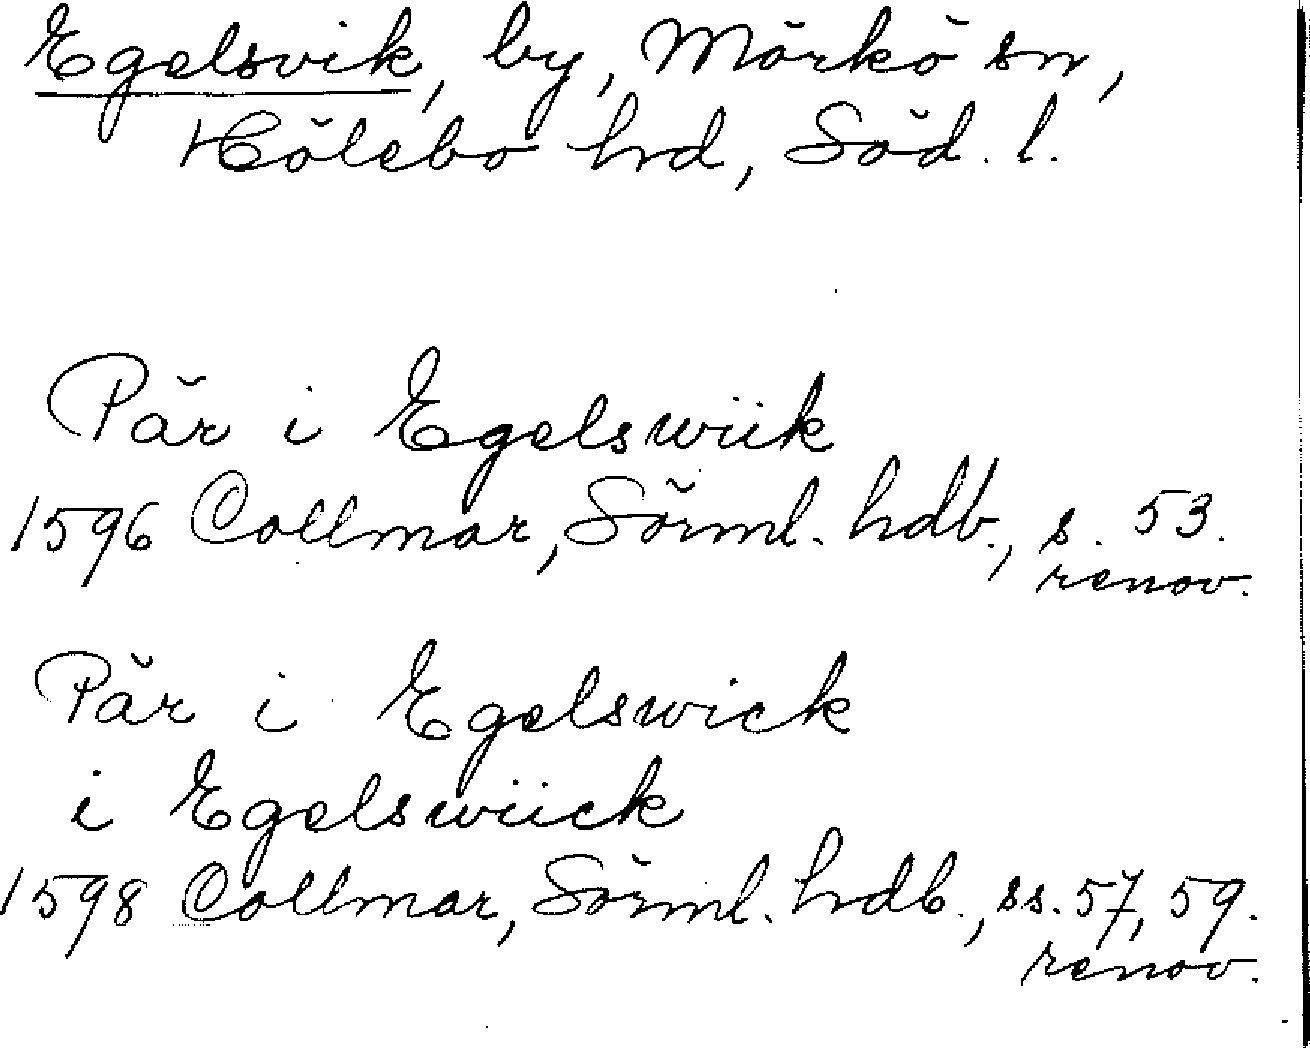 Egelsvik, by, Mörkö sn,
Hölebo hd, Söd. l.
Pär i Egelswiik
1596 Collmar, Sörml. hdb., s. 53.
renov.
Pär i Egelswick
i Egelswiick
1598 Collmar, Sörml. hdb., ss. 57, 59.
renov.